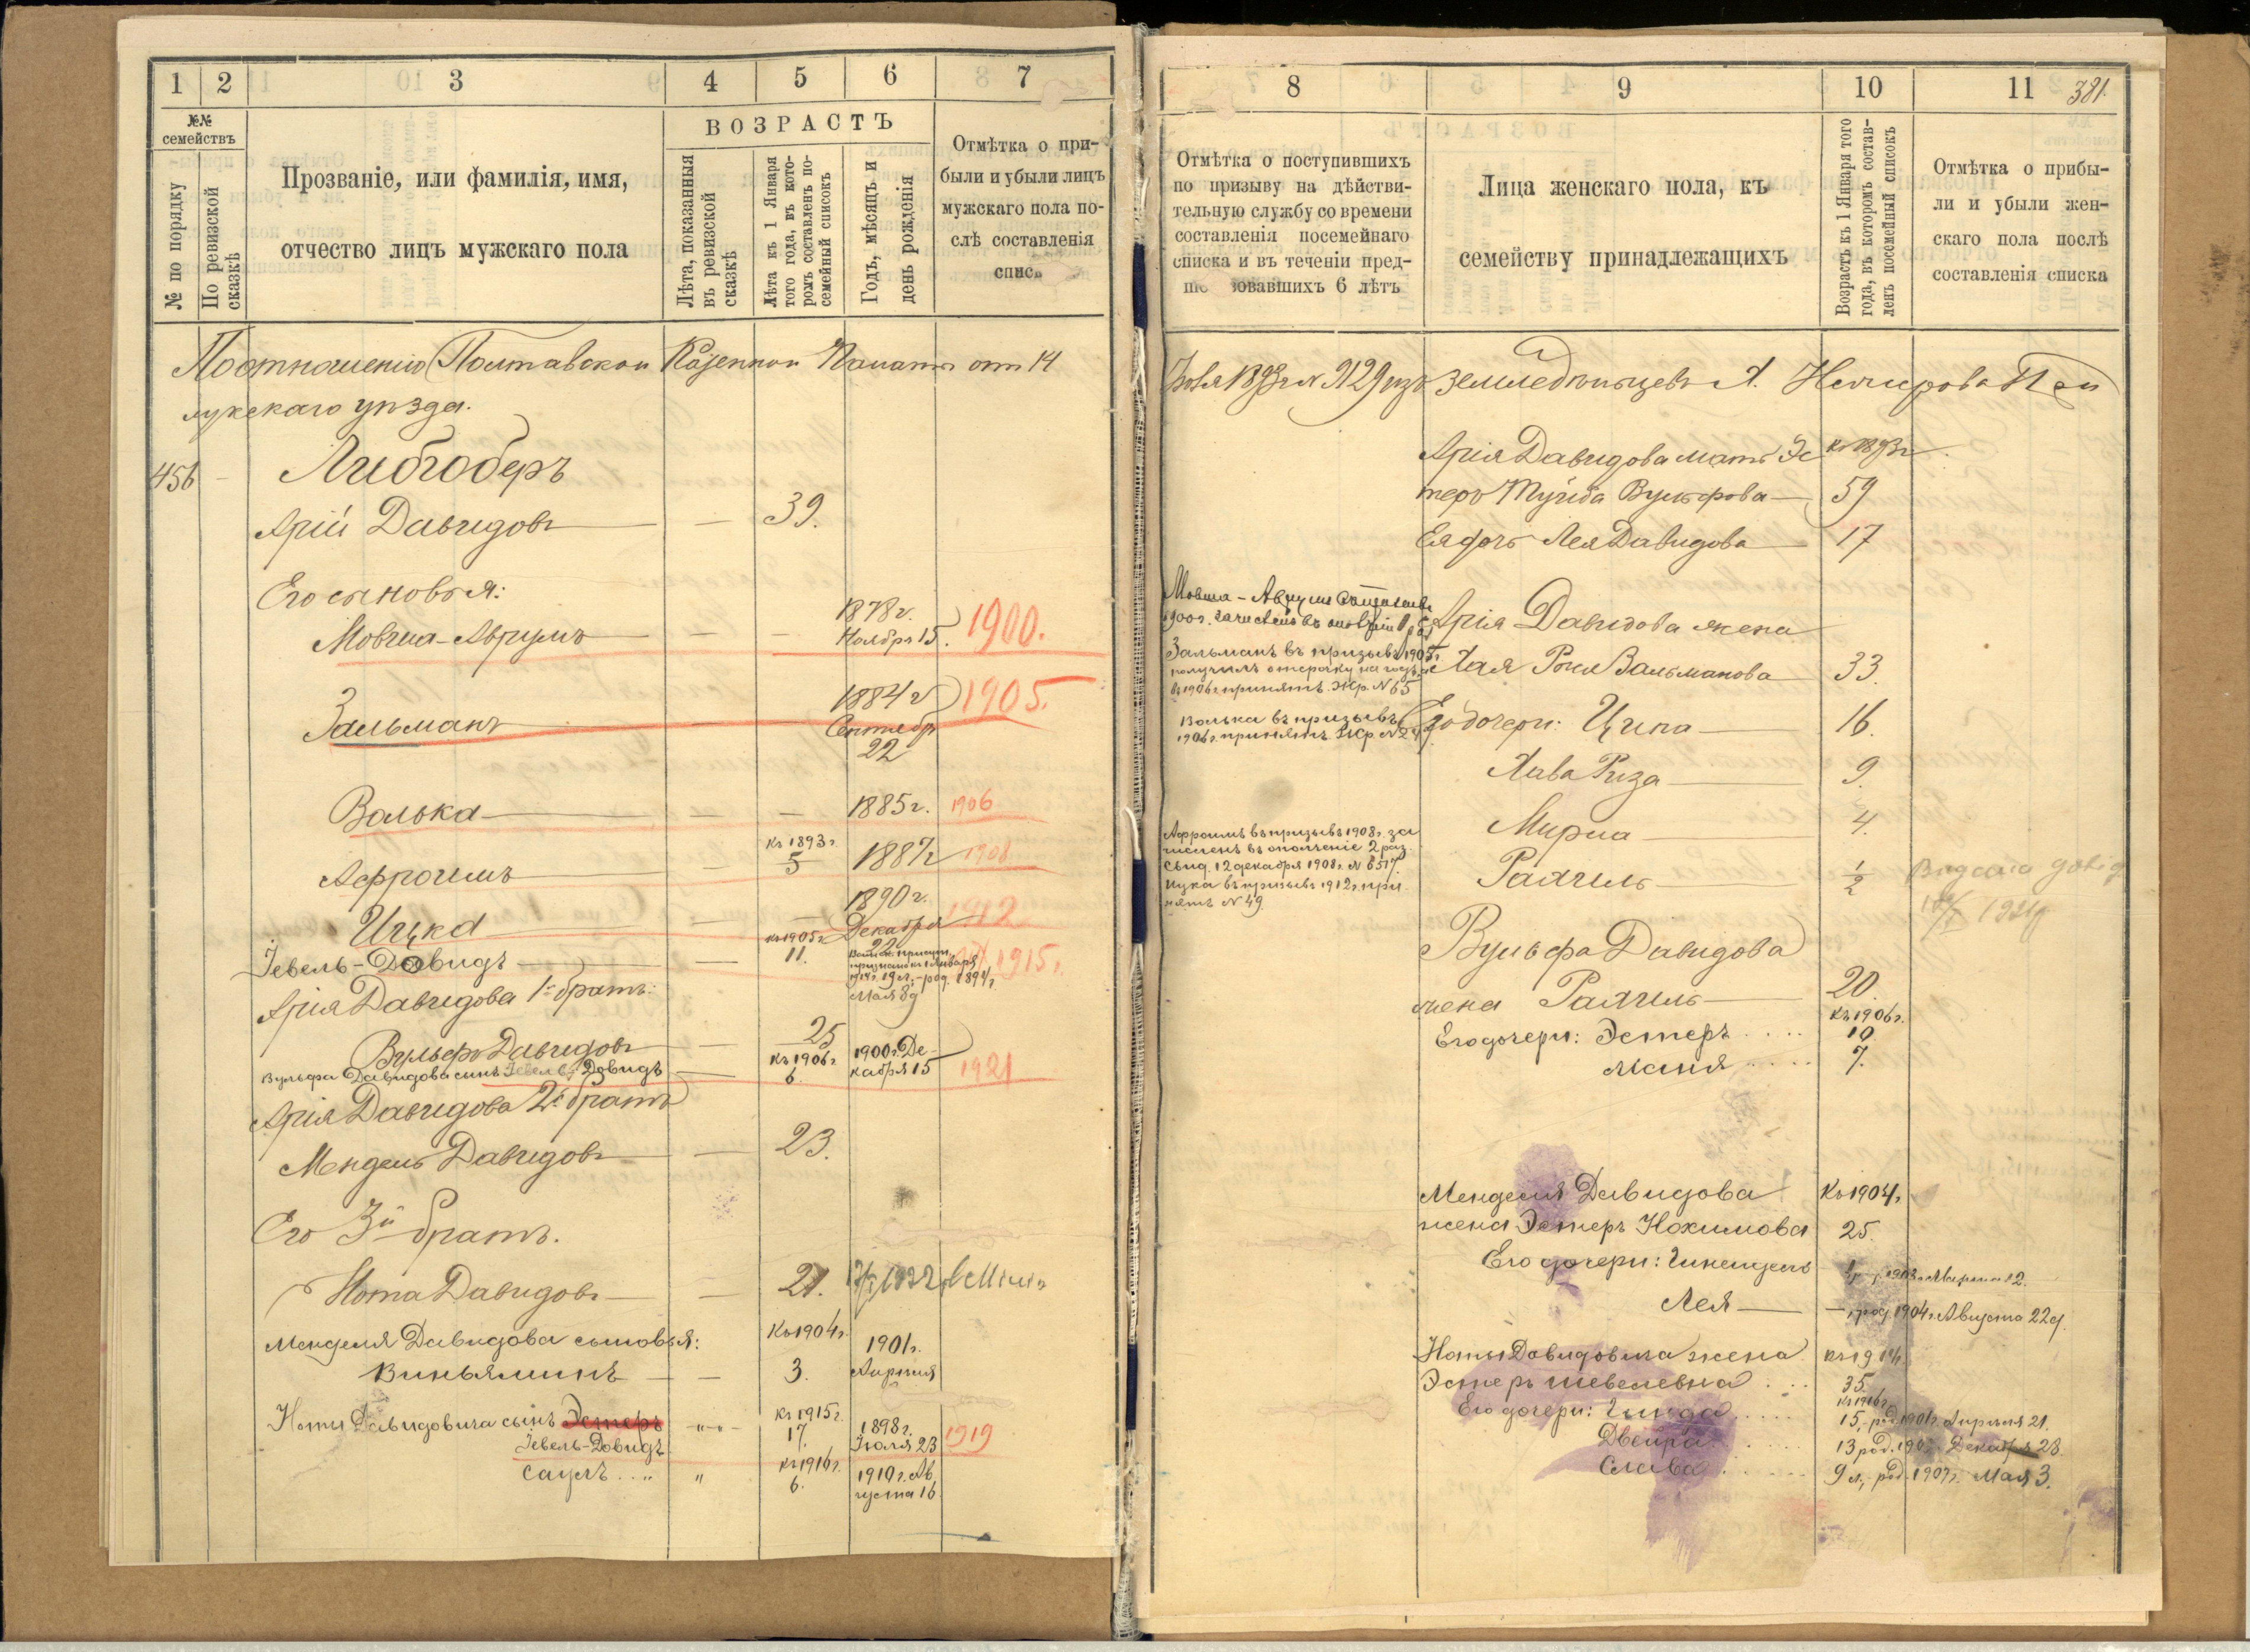 1 2 3 4 5 6 7
№№ семействъ
№ по порядку
По ревизской сказкѣ
Прозваніе, или фамилія, имя,
отчество лицъ мужскаго пола
ВОЗРАСТЪ
Лѣта, показанныя
въ ревизской
сказкѣ
Лѣта къ 1 Января
того года, въ кото-
ромъ составленъ по-
семейный списокъ
Годъ, мѣсяцъ и
день рожденія
Отмѣтка о при-
были и убыли лицъ
мужскаго пола по-
слѣ составленія
списк
По отношенію Полтавской Казенной Палаты отъ 14
лужскаго уѣзда.
456 - Либгоберъ
Арій Давидовъ — 39.
Его сыновья:
Мовша-Аврумъ — — 1878 г. Ноября 15. 1900.
Зальманъ — 1884 г. Сентября 22 1905.
Волька — — 1885 г. 1906
Афроимъ — къ 1893 г. 5 1887 г. 1908
Ицка — — 1890 г. Декабря 22 1912
Іевель-Довидъ — къ 1905 г. 11. 1915 г.
1914 г. 19 л. - род. 1894 г.
Мая 8 д
Арія Давидова 1й братъ:
Вульфъ Давидовъ — 25
Вульфа Давидова сынъ Іевель Довидъ — къ 1906 г. 6. 1900 г. Де-
кабря 15 1921
Арія Давидова 2й братъ
Мендель Давидовъ — 23.
Его 3й братъ.
Нота Давидовъ — 21.
Менделя Давидова сыновья: Къ 1904 г. 1901 г.
Виньяминъ — — 3. Апрѣля
Ноты Давидовича сынъ Эстеръ къ 1915 г. 1898 г.
Іевель-Довидъ 17. Іюля 23 1919
Сауль . . „ „ къ 1916 г. 6. 1910 г. Ав-
густа 16
8 9 10 11 381.
Отмѣтка о поступившихъ
по призыву на дѣйстви-
тельную службу со времени
составленія посемейнаго
списка и въ теченіи пред-
ше вовавшихъ 6 лѣтъ
Лица женскаго пола, къ
семейству принадлежащихъ
Возрастъ къ 1 Января того
года, въ которомъ состав-
ленъ посемейный списокъ
Отмѣтка о прибы-
ли и убыли жен-
скаго пола послѣ
составленія списка
1893 г. № 2129 изъ земледѣльцевъ
Арія Давидова мать Эс къ 1893 г.
теръ Вульфова — 59
Его дочь Лея Давидова — 17
Мовша-Аврумъ
1900 г. зачисленъ въ
Арія Давидова жена
Зальманъ въ призывъ 1905 г.
получилъ отсрочку на годъ, а
въ 1906 г. принятъ. Жр. № 65
Хая Рося Зальманова — 33.
Волька въ призывъ
1906 г. принятъ Жр. №
Его дочери: Ципа — 16.
Хава Риза — 9.
Мирла — 4.
Афроимъ въ призывъ 1908 г. за
численъ въ ополченіе 2 раз.
Свид. 12 декабря 1908 г. № 6517.
Рахиль — 1/2
Ицка въ призывъ 1912 г. при
нятъ № 49.
Вульфа Давидова
жена Рахиль — 20.
Его дочери: Эстеръ . . . . къ 1906 г. 10.
Маня . . . . 7.
Менделя Давидова Къ 1904 г.
жена Эстеръ Нохимова 25.
Его дочери:
Лея — —, род. 1904 г. Августа 22 д.
Ноты Давидовича жена къ 1914 г.
Эстеръ Шевелевна . . . 35.
Его дочери: къ 1916 г. 15, - род. 1901 г. Апрѣля 21.
Двейра . . . 13 род. Декабря 28.
Слава . . . . 9 л., - род. 1907 г. Мая 3.